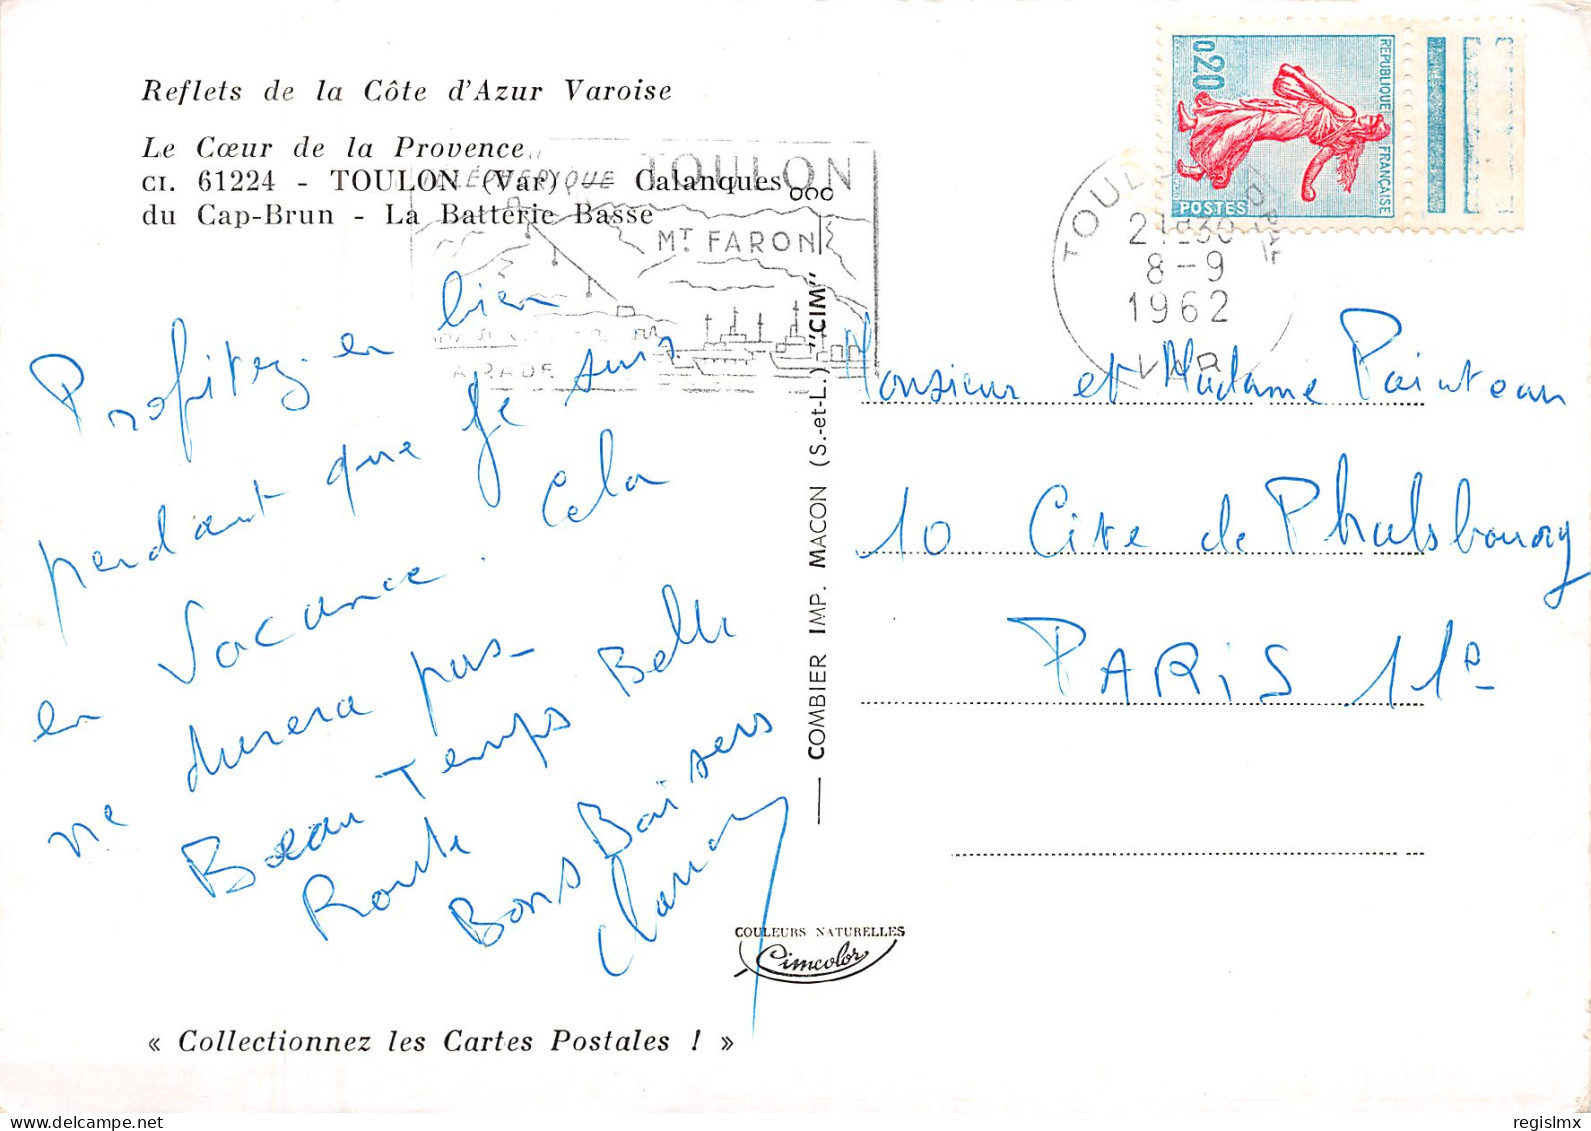 Reflets de la Côte d'Azur Varoise
Le Cœur de la Provence
CI. 61224 - TOULON (Var) — Calanques
du Cap-Brun - La Batterie Basse
TÉLÉPHÉRIQUE TOULON
MT FARON
LA RADE
Profitez-en bien
pendant que je suis
en vacance. Cela
ne durera pas-
Beau Temps Belle
Route
Bons Baisers
COMBIER IMP. MACON (S.-et-L.) "CIM"
COULEURS NATURELLES
Cimcolor
« Collectionnez les Cartes Postales ! »
0,20
REPUBLIQUE FRANÇAISE
POSTES
TOULON
21H30
8-9
1962
VAR
Monsieur et Madame Painteau
10 Cite de Phalsbourg
PARIS 11e
regislmx